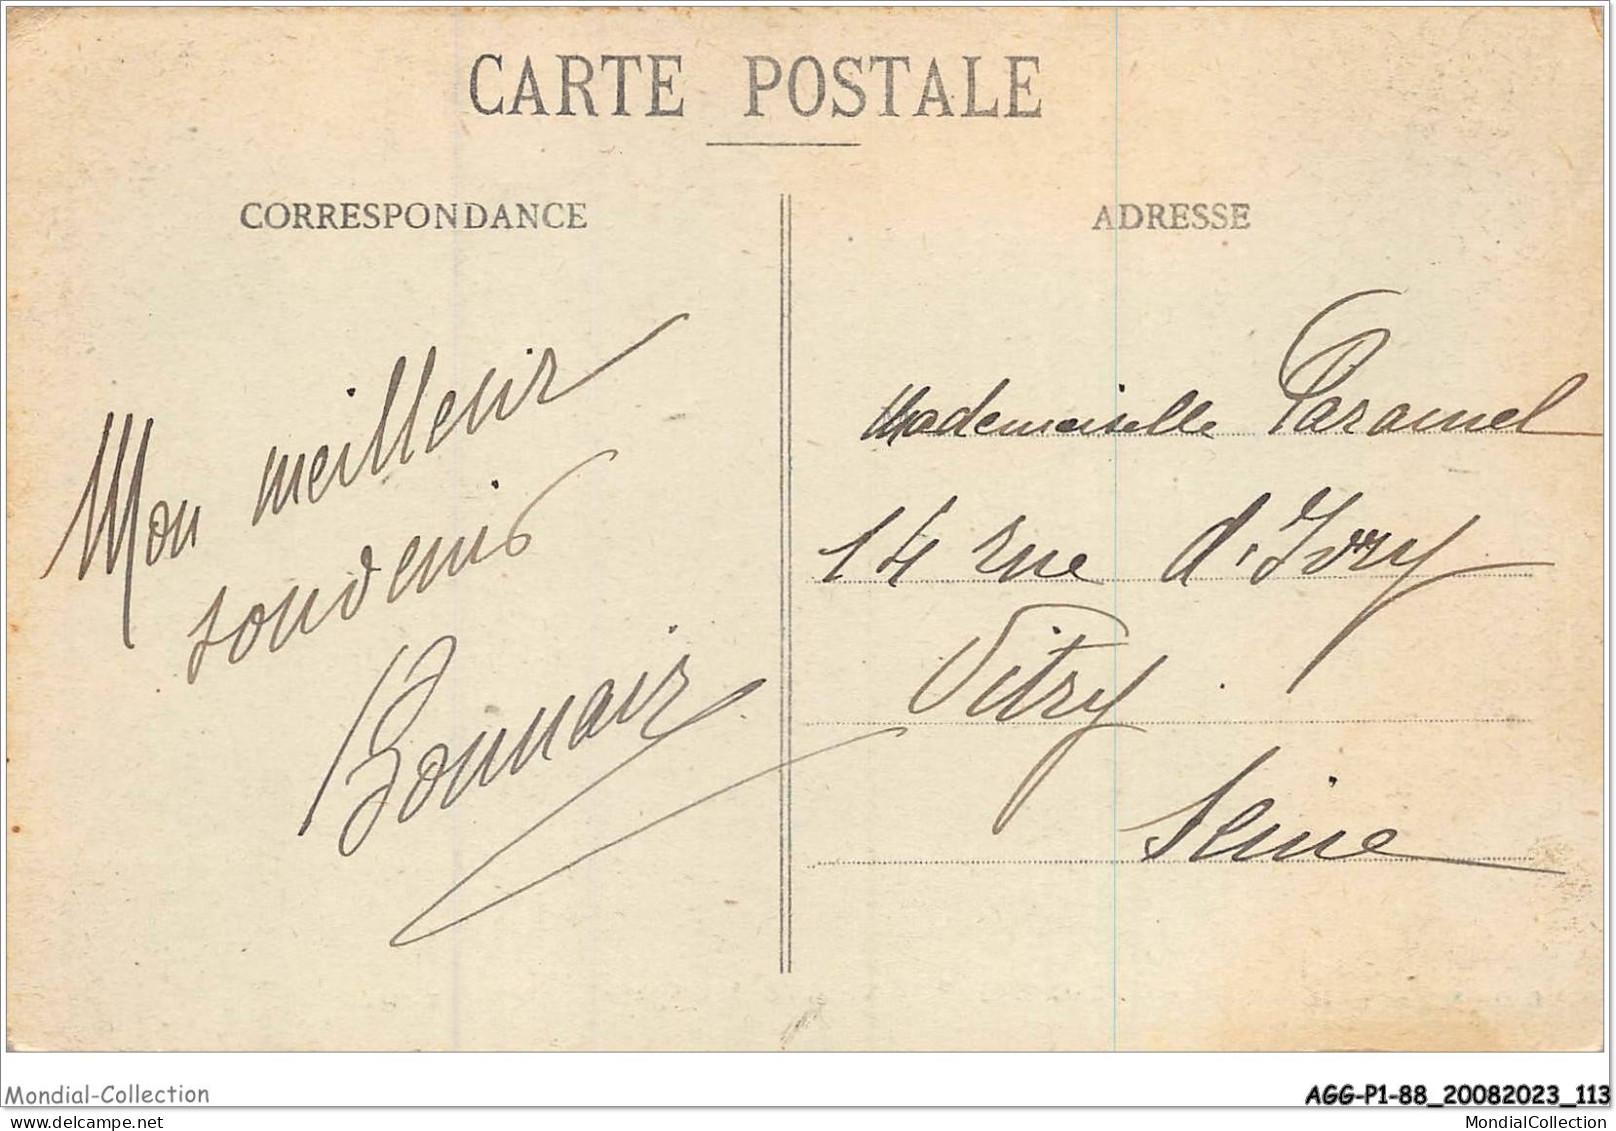 CARTE POSTALE
CORRESPONDANCE
ADRESSE
Mon meilleur
souvenir
Bonnair
Mademoiselle Paramel
14 rue d'Ivry
Vitry
Seine
Mondial-Collection
AGG-P1-88_20082023_113
MondialCollection